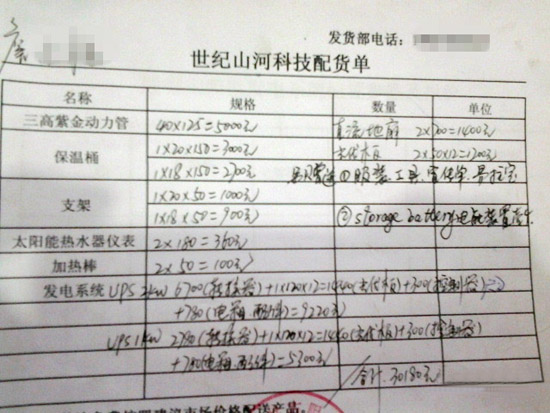 发货部电话:
世纪山河科技配货单
名称 规格 数量 单位
三高紫金动力管 40×125=5000元 直流地扇 2×700=1400元
保温桶 1×20×150=3000元 光伏板 2×50×12=1200元
1×18×150=2700元 ①服装工具、宣传单
支架 1×20×50=1000元
1×18×50=900元 ②storage battery电瓶装置
太阳能热水器仪表 2×180=360元
加热棒 2×50=100元
发电系统 UPS 2kw 6700(转换器)+1×120×12=1440(光伏板)+300(控制器)
+780(电箱、配件)=9220元
UPS 1kw 2780(转换器)+1×120×12=1440(光伏板)+300(控制器)
+780(电箱、配件)=5300元
合计:30180元
市场价格配送产品。